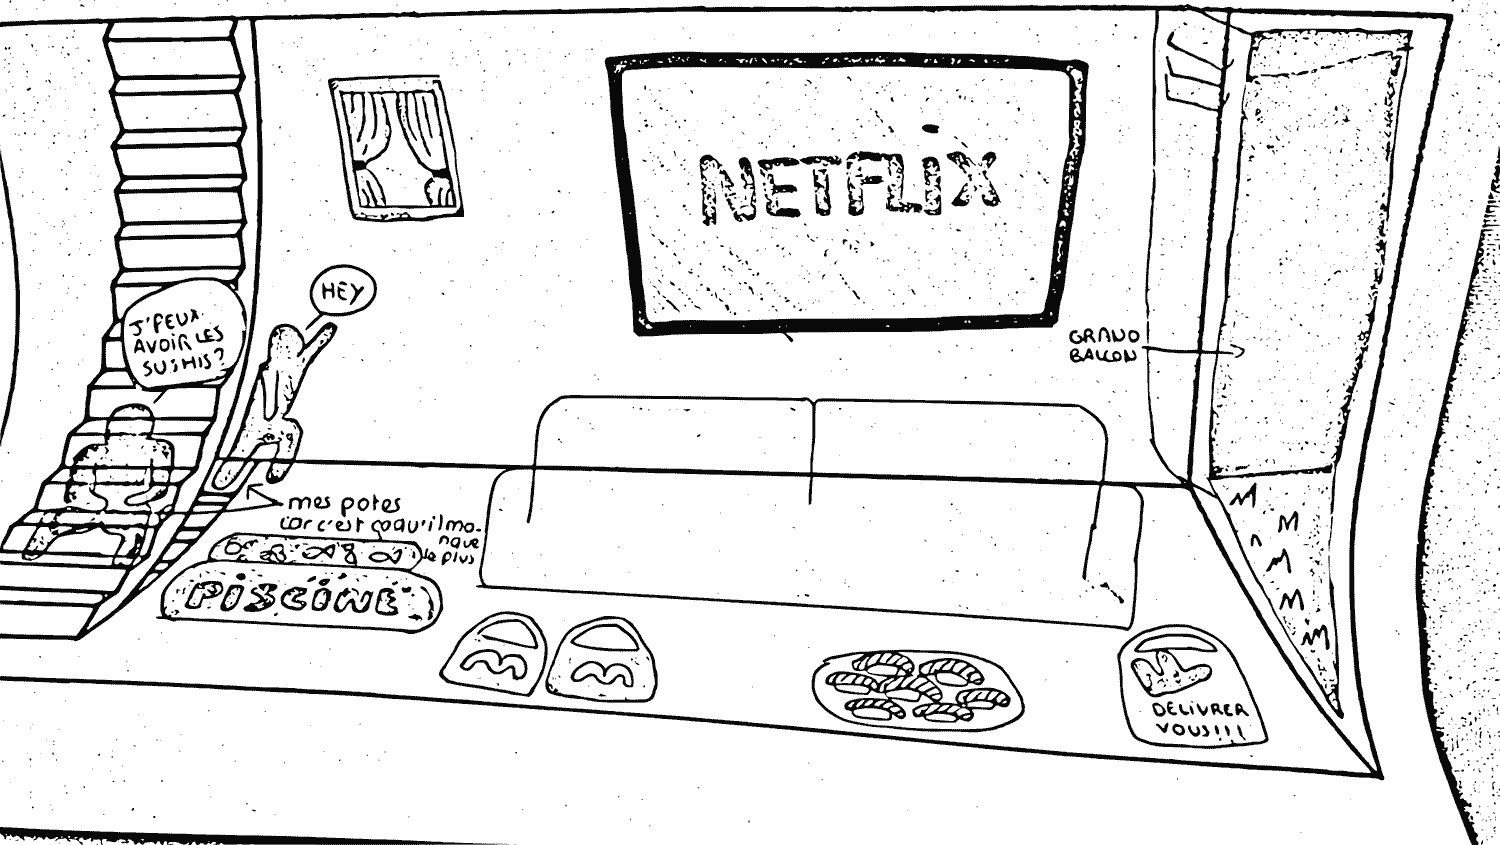 NETFLiX
HEY
J'PEUX
AVOIR LES
SUSHIS?
GRAND
BALLON
mes potes
car c'est ça qu'il ma-
nque
le plus
PISCINE
DELIVRER
VOUS!!!